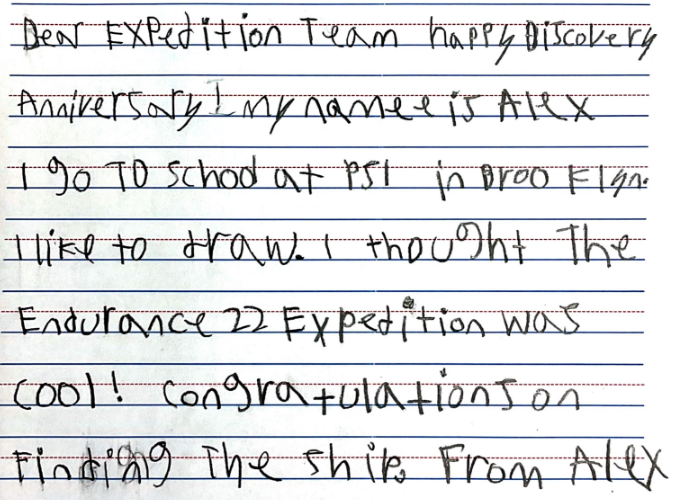 Dear Expedition Team happy Discovery
Anniversary! my namee is Alex
I go To school at PS1 in Brooklyn.
I like to draw. I thought The
Endurance 22 Expedition was
cool! Congratulations on
Finding The ship. From Alex